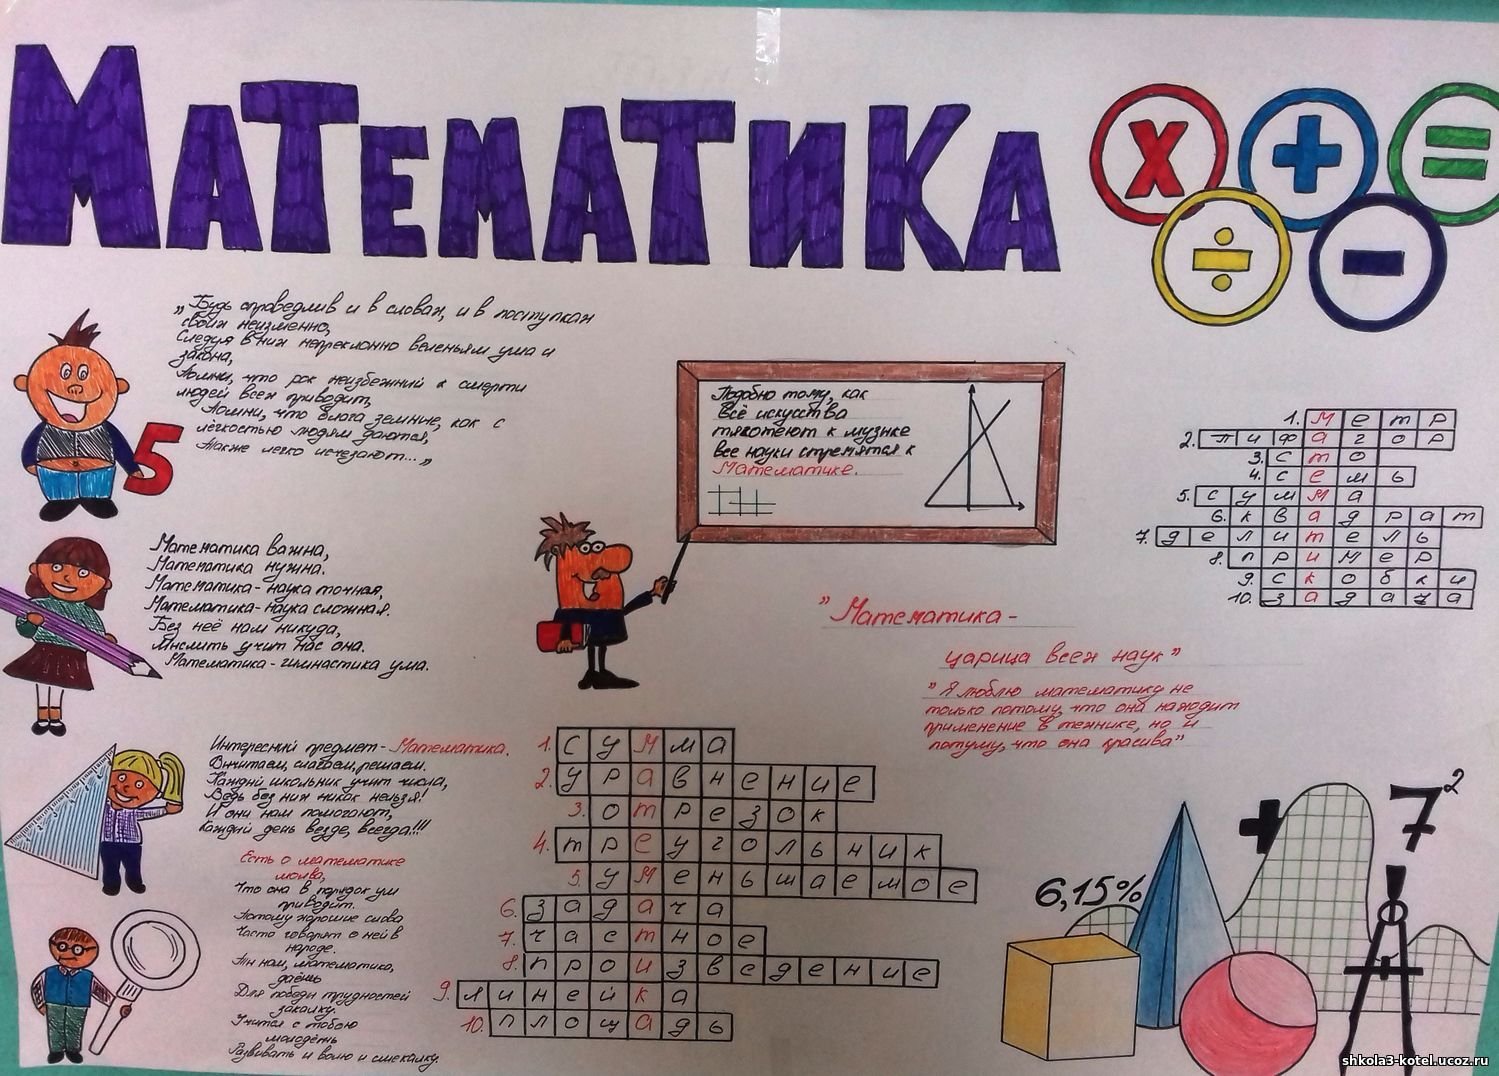 МАТЕМАТИКА
х + =
÷ -
„Будь справедлив и в словах, и в поступках
своих неизменно,
Следуя в них непреклонно веленьям ума и
закона,
Помни, что рок неизбежный к смерти
людей всех приводит,
Помни, что блага земные, как с
лёгкостью людям даются,
Также легко исчезают...„
5
Подобно тому, как
всё искусства
тяготеют к музыке
все науки стремятся к
Математике.
1. метр
2. пифагор
3. сто
4. семь
5. сумма
6. квадрат
7. делитель
8. пример
9. скобки
10. задача
Математика важна,
Математика нужна.
Математика - наука точная,
Математика - наука сложная.
Без неё нам никуда,
Мыслить учит нас она.
Математика - гимнастика ума.
” Математика -
царица всех наук ”
” Я люблю математику не
только потому, что она находит
применение в технике, но и
потуму, что она красива”
Интересный предмет - Математика.
Вычитаем, слагаем, решаем.
Каждый школьник учит числа,
Ведь без них никак нельзя!
И они нам помогают,
Каждый день везде, всегда!!!
Есть о математике
молва,
Что она в порядок ум
приводит.
Потому хорошие слова
Часто говорят о ней в
народе.
Ты нам, математика,
даёшь
Для победы трудностей
закалку.
Учится с тобою
молодёжь
Развивать и волю и смекалку.
1. сумма
2. уравнение
3. отрезок
4. треугольник
5. уменьшаемое
6. задача
7. частное
8. произведение
9. линейка
10. площадь
+ 7²
6,15%
shkola3-kotel.ucoz.ru